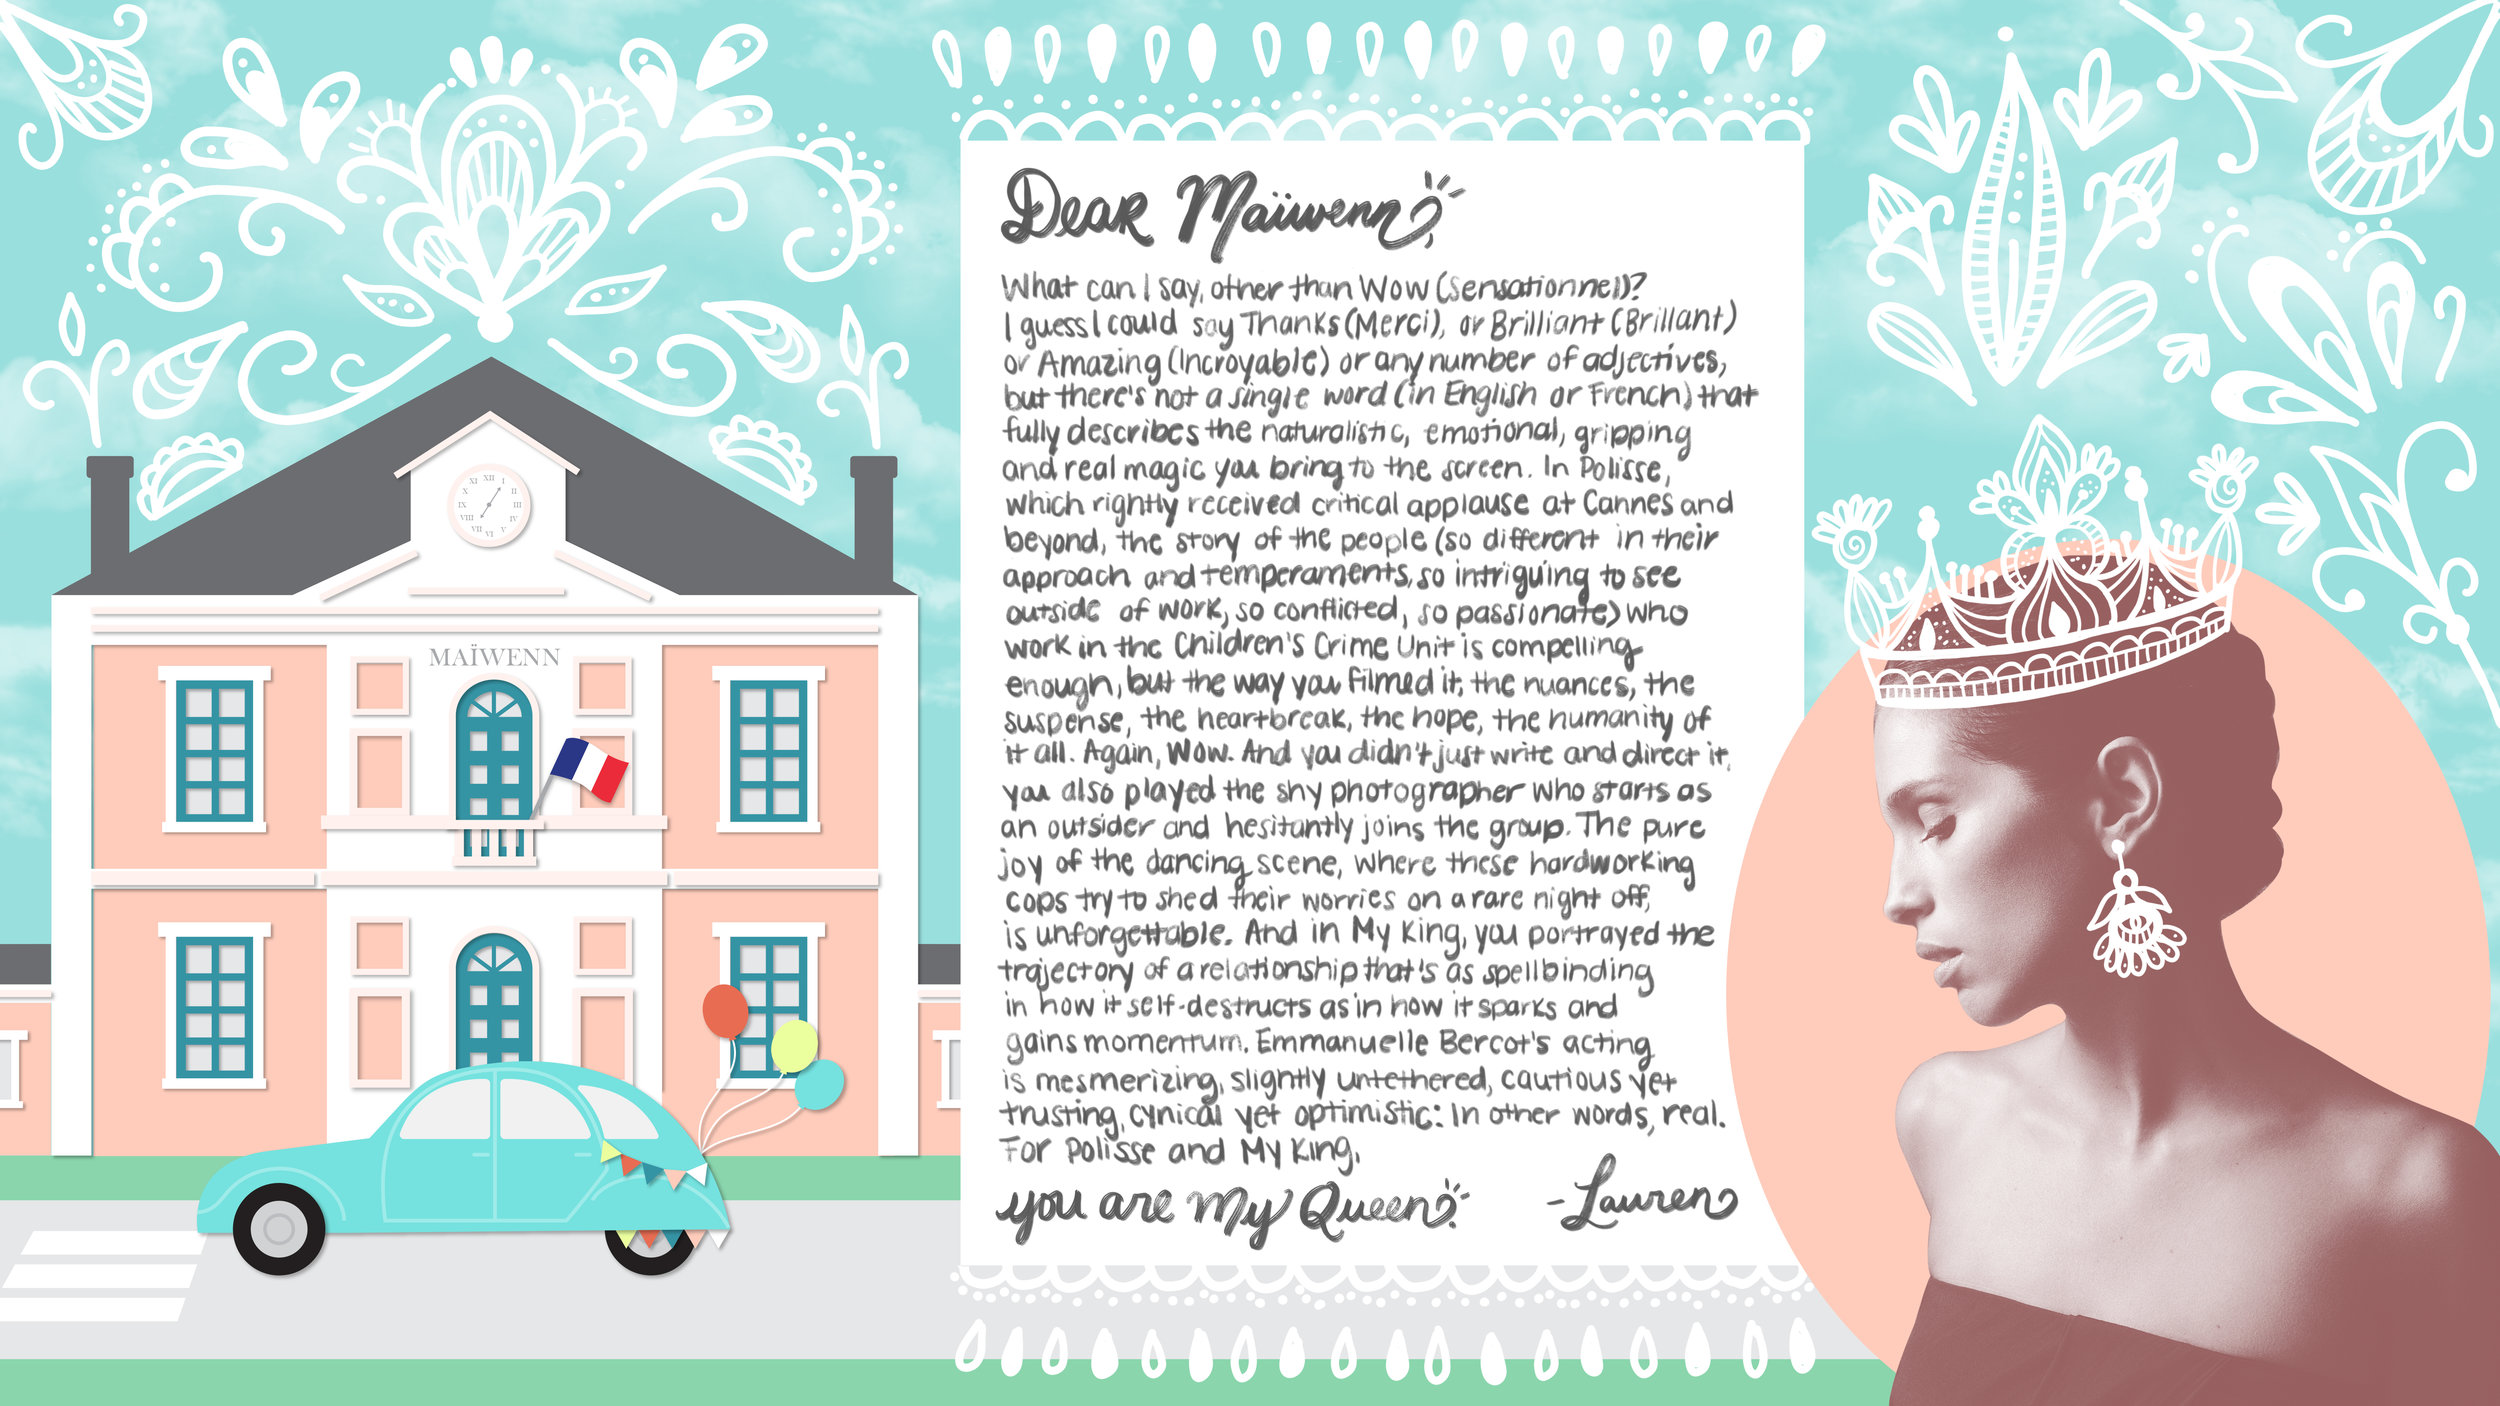 XII
I
II
III
IV
V
VI
VII
VIII
IX
X
XI
MAÏWENN
Dear Maïwenn,
What can I say, other than Wow (Sensationnel)?
I guess I could say Thanks (Merci), or Brilliant (Brillant)
or Amazing (Incroyable) or any number of adjectives,
but there's not a single word (in English or French) that
fully describes the naturalistic, emotional, gripping
and real magic you bring to the screen. In Polisse,
which rightly received critical applause at Cannes and
beyond, the story of the people (so different in their
approach and temperaments, so intriguing to see
outside of work, so conflicted, so passionate) who
work in the Children's Crime Unit is compelling
enough, but the way you filmed it, the nuances, the
suspense, the heartbreak, the hope, the humanity of
it all. Again, Wow. And you didn't just write and direct it,
you also played the shy photographer who starts as
an outsider and hesitantly joins the group. The pure
joy of the dancing scene, where these hardworking
cops try to shed their worries on a rare night off,
is unforgettable. And in My King, you portrayed the
trajectory of a relationship that's as spellbinding
in how it self-destructs as in how it sparks and
gains momentum. Emmanuelle Bercot's acting
is mesmerizing, slightly untethered, cautious yet
trusting, cynical yet optimistic: In other words, real.
For Polisse and My King,
you are My Queen.
-Lauren